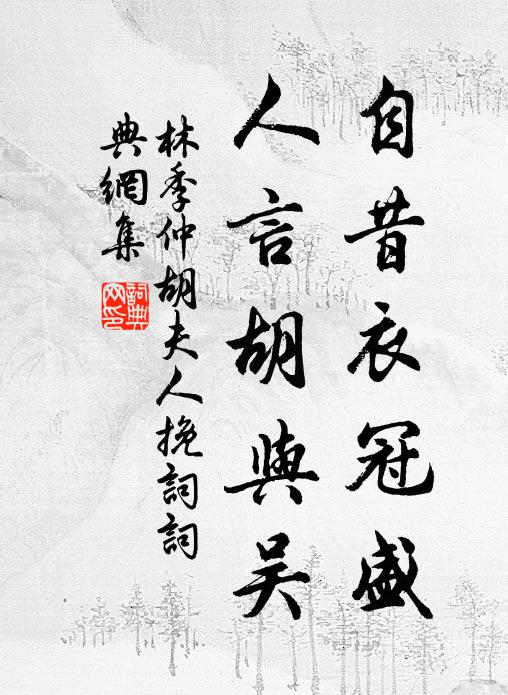 自昔衣冠盛
人言胡與吴
林季仲胡夫人挽詞詞
典網集
詞典网印